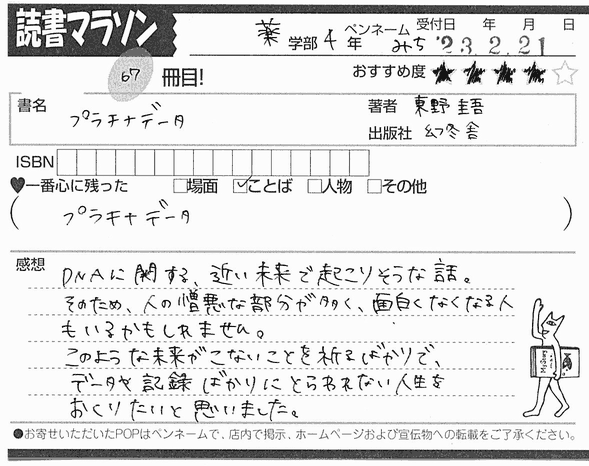 読書マラソン
薬 学部 4 年 ペンネーム みち 受付日 年 月 日 '23.2.21
67 冊目!
おすすめ度 ★★★★☆
書名 プラチナデータ
著者 東野 圭吾
出版社 幻冬舎
ISBN
♥一番心に残った □場面 ☑ことば □人物 □その他
( プラチナデータ )
感想
DNAに関する、近い未来で起こりそうな話。
そのため、人の憎悪な部分が多く、面白くなくなる人
もいるかもしれません。
このような未来がこないことを祈るばかりで、
データや記録ばかりにとらわれない人生を
おくりたいと思いました。
●お寄せいただいたPOPはペンネームで、店内で掲示、ホームページおよび宣伝物への転載をご了承ください。